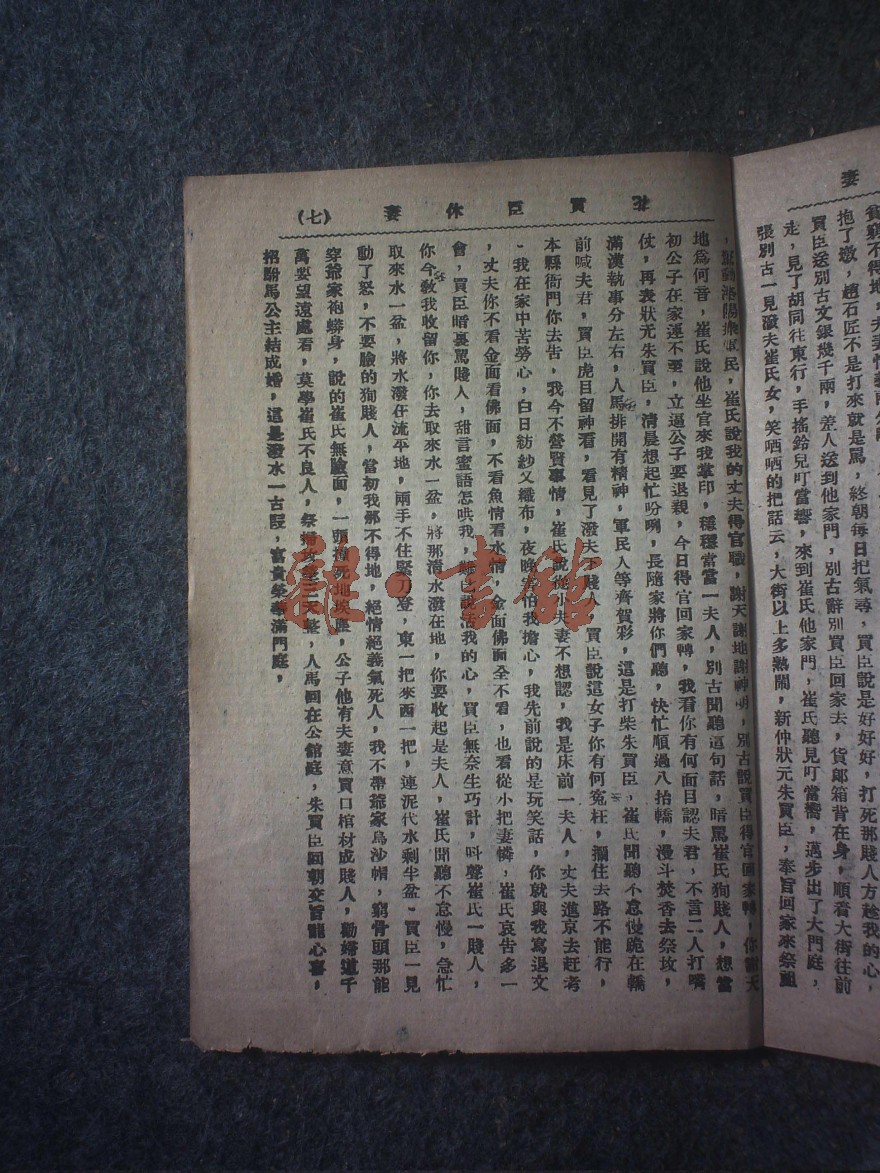 妻
貧窮不得地，夫妻情義
抱了墩，趙石匠不是打來就是罵，終朝每日把氣尋，買臣說是好好好，打死那賤人方趁我的心，
買臣送別古文銀幾千兩，差人送到他家門，別古辭別買臣回家去，貨郎箱背在身，順着大街往前
走，見了胡同往東行，手搖鈴兒叮當響，來到崔氏他家門，崔氏聽見叮當嚮，邁步出了大門庭，
張別古一見潑夫崔氏女，笑哂哂的把話云，大街以上多熱鬧，新仲狀元朱買臣，奉旨回家來祭祖
朱買臣休妻 （七）
，驚動洛陽衆軍民，崔氏說我的丈夫得官職，謝天謝地謝神明，別古說買臣得官回家轉，你謝天
地爲何音，崔氏說他坐官來我掌印，穩穩當當一夫人，別古聞聽這句話，暗罵崔氏狗賤人，想當
初公子在家運不至，立逼公子要退親，今日得官回家轉，我看你有何面目認夫君，不言二人打嘴
仗，再表狀元朱買臣，清晨想起忙吩咐，長隨家將你們聽，快忙順過八抬轎，漫斗焚香去祭坟，
滿漢執事分左右，人馬排開有精神，軍民人等齊賀彩，這是打柴朱買臣，崔氏聞聽不怠慢跪在轎
前喊夫君，買臣虎目留神看，看見了潑夫賤人，買臣說這女子你有何寃枉，攔住去路不能行，
本縣衙門你去告，我今不營賢事情，崔氏說從小夫妻不想認，我是床前一夫人，丈夫進京去赶考
，我在家中苦勞心，白日紡紗又織布，夜晚害怕我擔心，我先前說的是玩笑話，你就與我寫退文
，丈夫你不看金面看佛面，不看魚情看水情，金面佛面全不看，也看從小把妻憐，崔氏哀告多一
會，買臣暗裏罵賤人，甜言蜜語怎哄我，難已說活我的心，買臣無奈生巧計，呌聲崔氏一賤人，
你今教我收留你，你去取來水一盆，將那清水潑在地，你要收起是夫人，崔氏聞聽不怠慢，急忙
取來水一盆，將水潑在流平地，兩手不住緊刀登，東一把來西一把，連泥代水剩半盆，買臣一見
動了怒，不要臉的狗賤人，當初我那不得地，絕情絕義氣死人，我不帶爺家烏沙帽，窮骨頭那能
穿爺家袍蟒身，說的崔氏無臉面，一頭撞死地埃塵，公子他有夫妻意買口棺材成賤人，勸婦道千
萬要望遠處看，莫學崔氏不良人，祭掃坟塋三天整，人馬回在公館庭，朱買臣回朝交旨龍心喜，
招駙馬公主結成婚，這是潑水一古段，富貴榮華滿門庭，
雜·書館